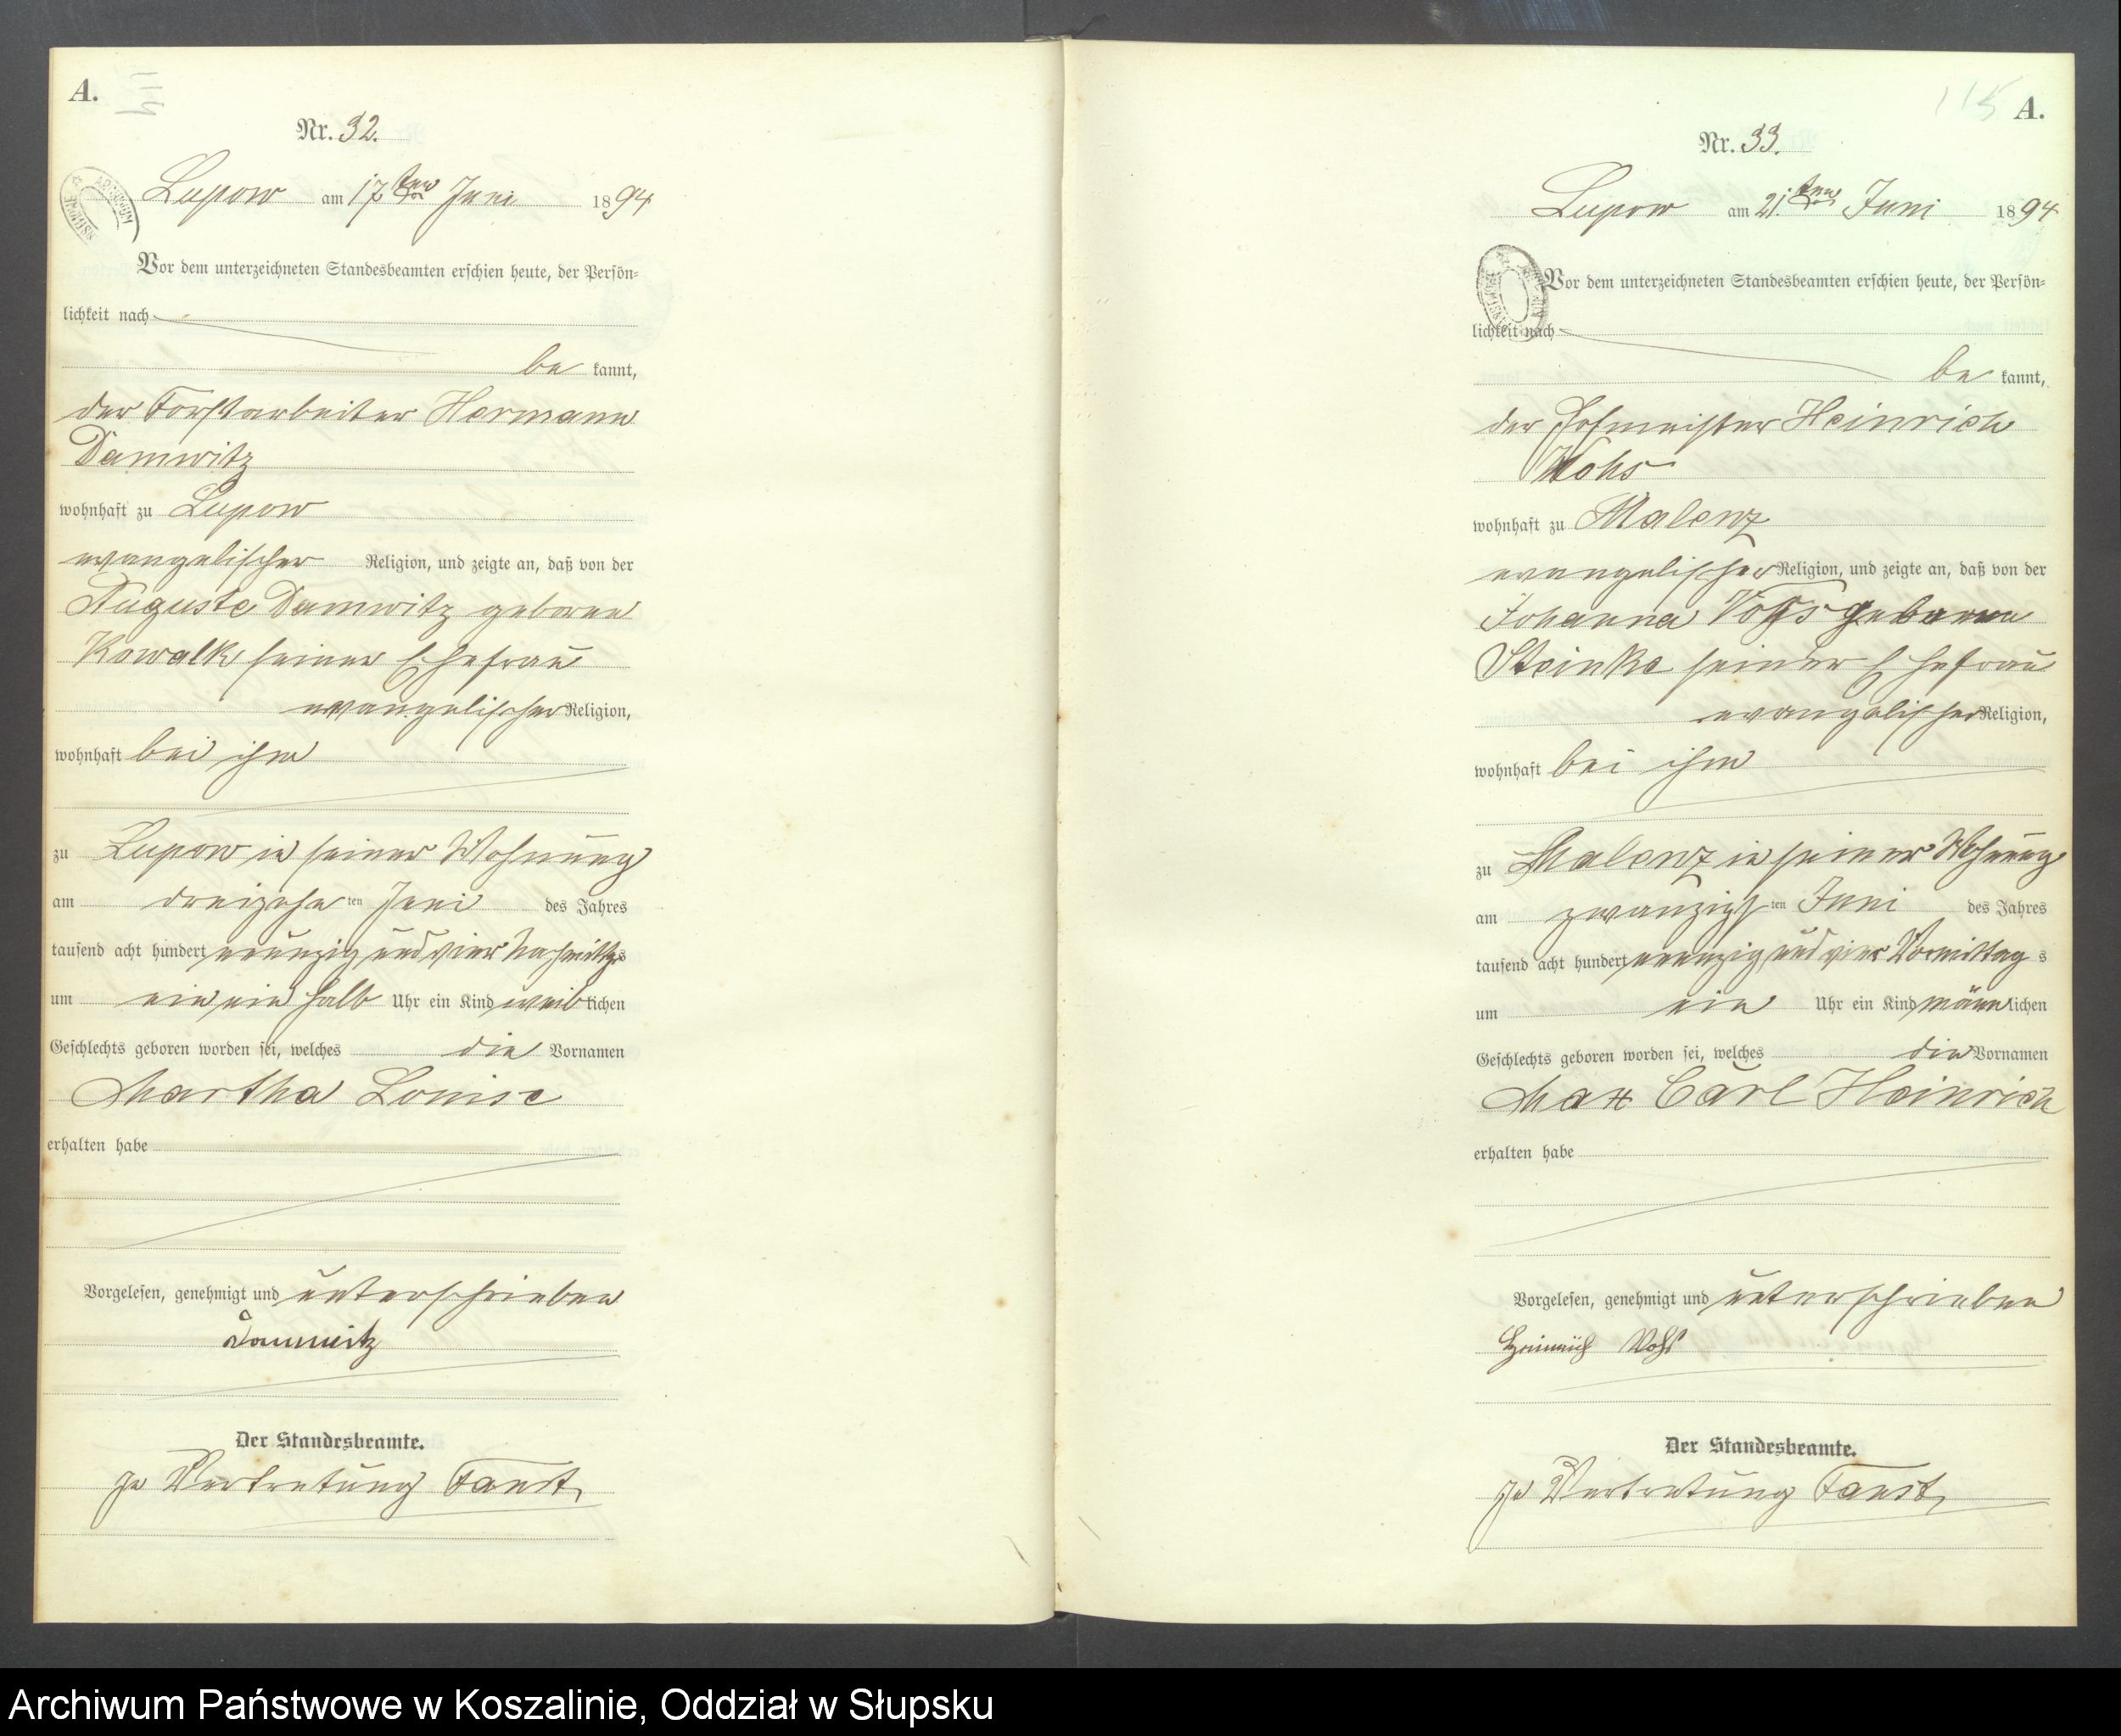 A.
Nr. 32.
Lupow am 17ten Juni 1894
Vor dem unterzeichneten Standesbeamten erschien heute, der Persön=
lichkeit nach
be kannt,
der Forstarbeiter Hermann
Damwitz
wohnhaft zu Lupow
evangelischer Religion, und zeigte an, daß von der
Auguste Damwitz geboren
Kowalk seiner Ehefrau
evangelischer Religion,
wohnhaft bei ihm
zu Lupow in seiner Wohnung
am dreizehn ten Juni des Jahres
tausend acht hundert neunzig und vier Nachmittags
um ein ein halb Uhr ein Kind weiblichen
Geschlechts geboren worden sei, welches die Vornamen
Martha Louise
erhalten habe
Vorgelesen, genehmigt und unterschrieben
Damwitz
Der Standesbeamte.
In Vertretung Faust
115 A.
Nr. 33.
Lupow am 21ten Juni 1894
Vor dem unterzeichneten Standesbeamten erschien heute, der Persön=
lichkeit nach
be kannt,
der Hofmeister Heinrich
Vohs
wohnhaft zu Malenz
evangelischer Religion, und zeigte an, daß von der
Johanna Vohs geborene
Steinke seiner Ehefrau
evangelischer Religion,
wohnhaft bei ihm
zu Malenz in seiner Wohnung
am zwanzigs ten Juni des Jahres
tausend acht hundert neunzig und vier Vormittag s
um ein Uhr ein Kind männlichen
Geschlechts geboren worden sei, welches die Vornamen
Max Carl Heinrich
erhalten habe
Vorgelesen, genehmigt und unterschrieben
Heinrich Vohs
Der Standesbeamte.
In Vertretung Faust
Archiwum Państwowe w Koszalinie, Oddział w Słupsku